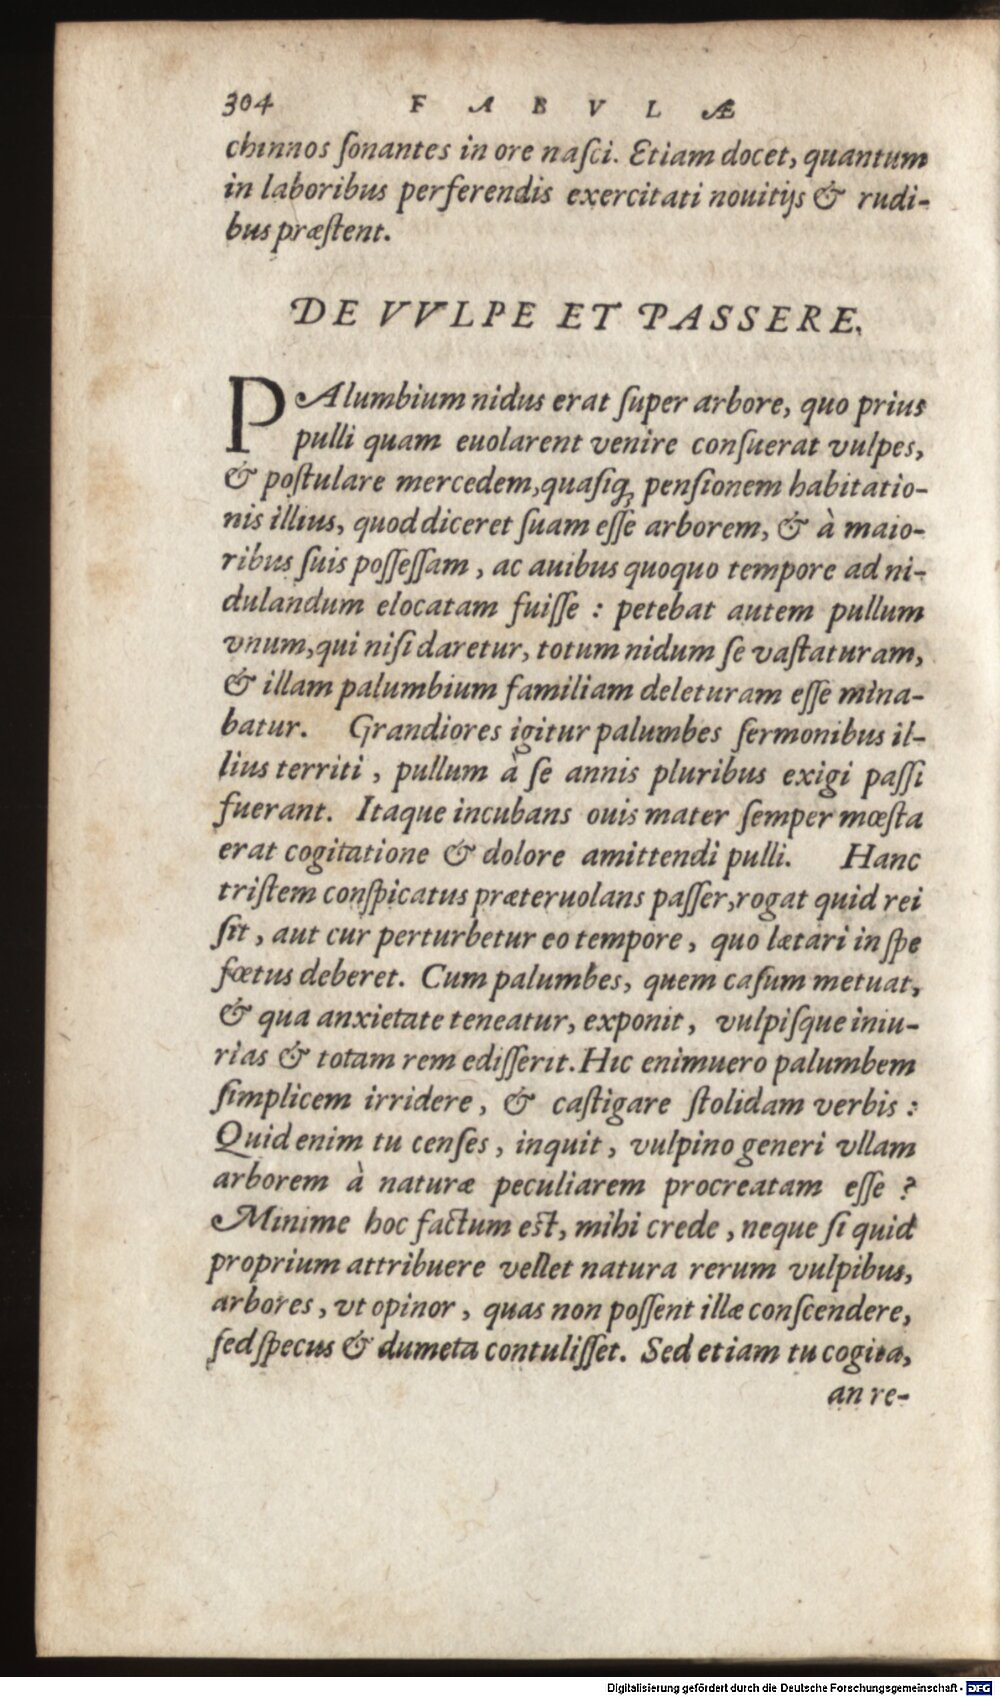 304 F A B V L Æ
chinnos ſonantes in ore naſci. Etiam docet, quantum
in laboribus perferendis exercitati nouitijs & rudi-
bus præſtent.
DE VVLPE ET PASSERE.
PAlumbium nidus erat ſuper arbore, quo prius
pulli quam euolarent venire conſuerat vulpes,
& poſtulare mercedem, quaſiq; penſionem habitatio-
nis illius, quod diceret ſuam eſſe arborem, & à maio-
ribus ſuis poſſeſſam, ac auibus quoquo tempore ad ni-
dulandum elocatam fuiſſe : petebat autem pullum
vnum, qui niſi daretur, totum nidum ſe vaſtaturam,
& illam palumbium familiam deleturam eſſe mina-
batur. Grandiores igitur palumbes ſermonibus il-
lius territi, pullum à ſe annis pluribus exigi paſſi
fuerant. Itaque incubans ouis mater ſemper mœſta
erat cogitatione & dolore amittendi pulli. Hanc
triſtem conſpicatus præteruolans paſſer, rogat quid rei
ſit, aut cur perturbetur eo tempore, quo lætari in ſpe
fœtus deberet. Cum palumbes, quem caſum metuat,
& qua anxietate teneatur, exponit, vulpiſque iniu-
rias & totam rem ediſſerit. Hic enimuero palumbem
ſimplicem irridere, & caſtigare ſtolidam verbis :
Quid enim tu cenſes, inquit, vulpino generi vllam
arborem à naturæ peculiarem procreatam eſſe ?
Minime hoc factum eſt, mihi crede, neque ſi quid
proprium attribuere vellet natura rerum vulpibus,
arbores, vt opinor, quas non poſſent illæ conſcendere,
ſed ſpecus & dumeta contuliſſet. Sed etiam tu cogita,
an re-
Digitalisierung gefördert durch die Deutsche Forschungsgemeinschaft - DFG